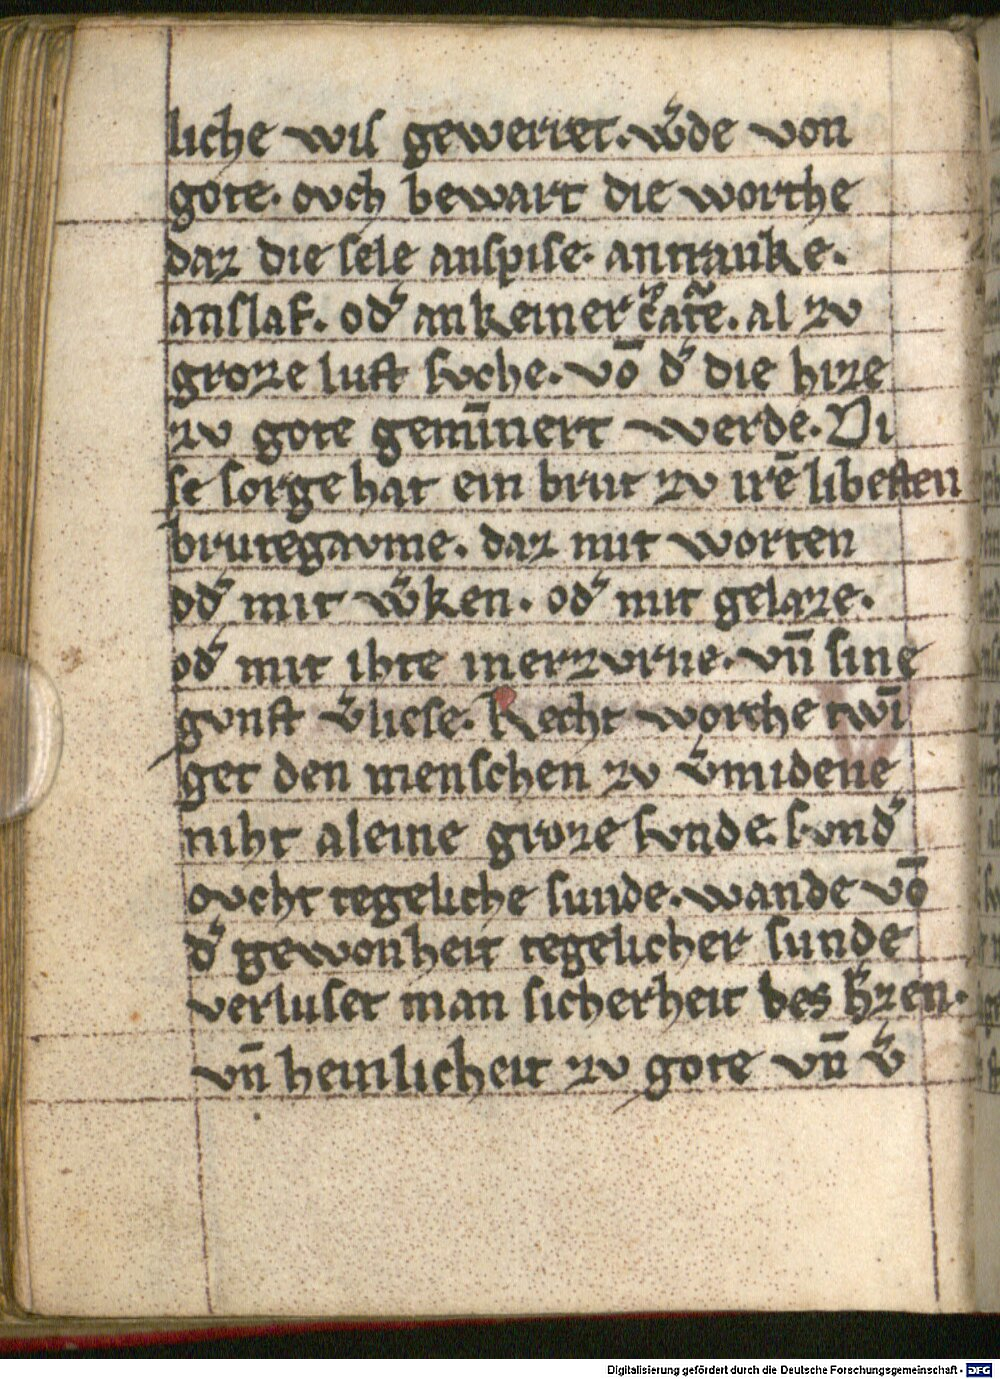 liche wiſ gewerret. w̾de von
gote. ovch bewart die worthe
daz die ſele anſpiſe. antranke.
anſlaf. od̾ an keiner c̾atv̾e. al zv
groze luſt ſvche. vō d̾ die hize
zv gote gemīnert werde. Di
ſe ſorge hat ein brut zv irē libeſten
brutegavme. daz mit worten
od̾ mit w̾ken. od̾ mit gelaze.
od̾ mit ihte in erzvrne. vn̄ ſine
gvnſt v̾lieſe. Recht worche twī
get den menſchen zv v̾midene
niht aleine groze ſvnde. ſvnd̾
ovcht tegeliche ſunde. wande vō
d̾ gewonheit tegelicher ſunde
verluſet man ſicherheit des h̾zen.
vn̄ heinlicheit zv gote vn̄ v̾
Digitalisierung gefördert durch die Deutsche Forschungsgemeinschaft - DFG